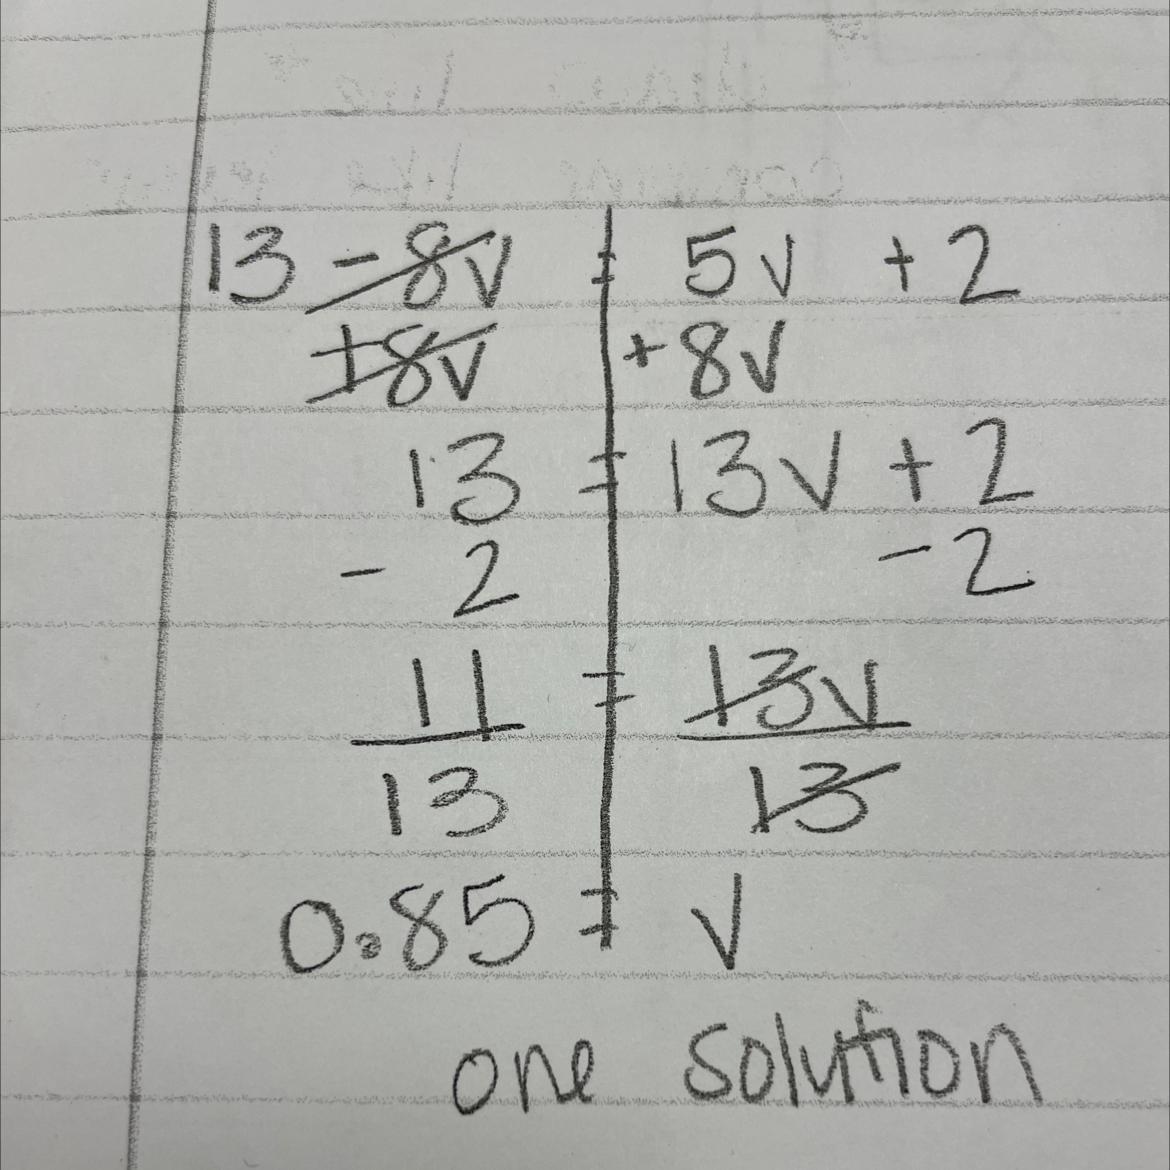 13 - 8v = 5v + 2
+8v +8v
13 = 13v + 2
- 2 - 2
11 = 13v
13 13
0.85 = v
one solution